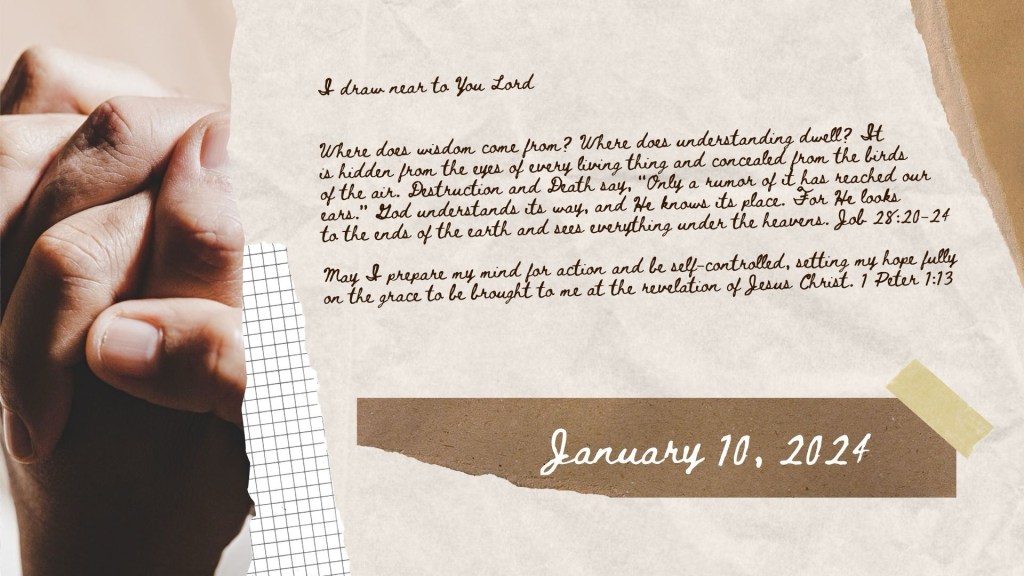 I draw near to You Lord
Where does wisdom come from? Where does understanding dwell? It
is hidden from the eyes of every living thing and concealed from the birds
of the air. Destruction and Death say, "Only a rumor of it has reached our
ears." God understands its way, and He knows its place. For He looks
to the ends of the earth and sees everything under the heavens. Job 28:20-24
May I prepare my mind for action and be self-controlled, setting my hope fully
on the grace to be brought to me at the revelation of Jesus Christ. 1 Peter 1:13
January 10, 2024